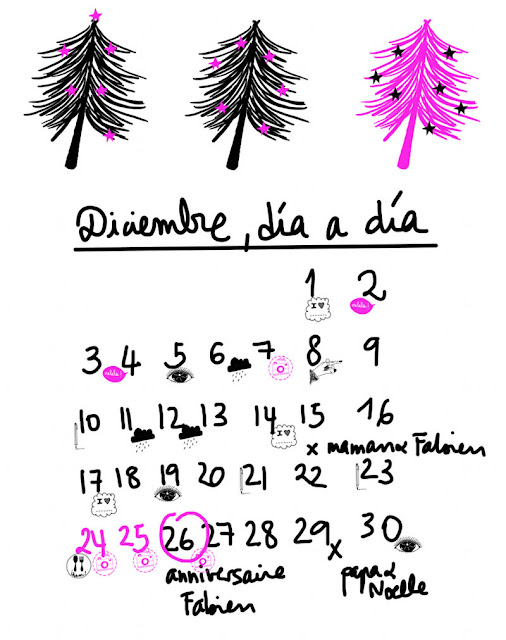 Diciembre, día a día
1 2
I ♥
3 4 5 6 7 8 9
10 11 12 13 14 15 16
I ♥
x maman & Fabien
17 18 19 20 21 22 23
I ♥
24 25 26 27 28 29 x 30
anniversaire
Fabien
papa &
Noelle